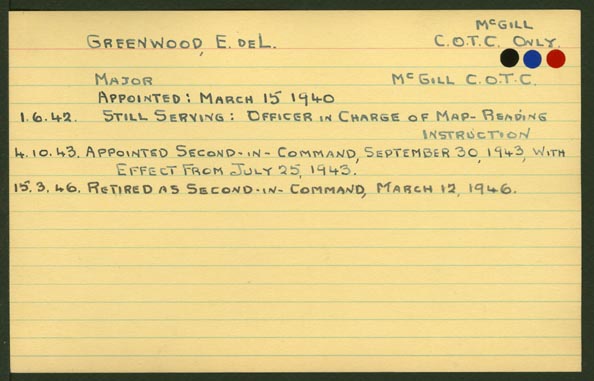 McGILL
GREENWOOD, E. DEL. C.O.T.C. ONLY.
MAJOR McGILL C.O.T.C.
APPOINTED: MARCH 15 1940
1.6.42. STILL SERVING: OFFICER IN CHARGE OF MAP-READING
INSTRUCTION
4.10.43. APPOINTED SECOND-IN-COMMAND, SEPTEMBER 30, 1943, WITH
EFFECT FROM JULY 25, 1943.
15.3.46. RETIRED AS SECOND-IN-COMMAND, MARCH 12, 1946.